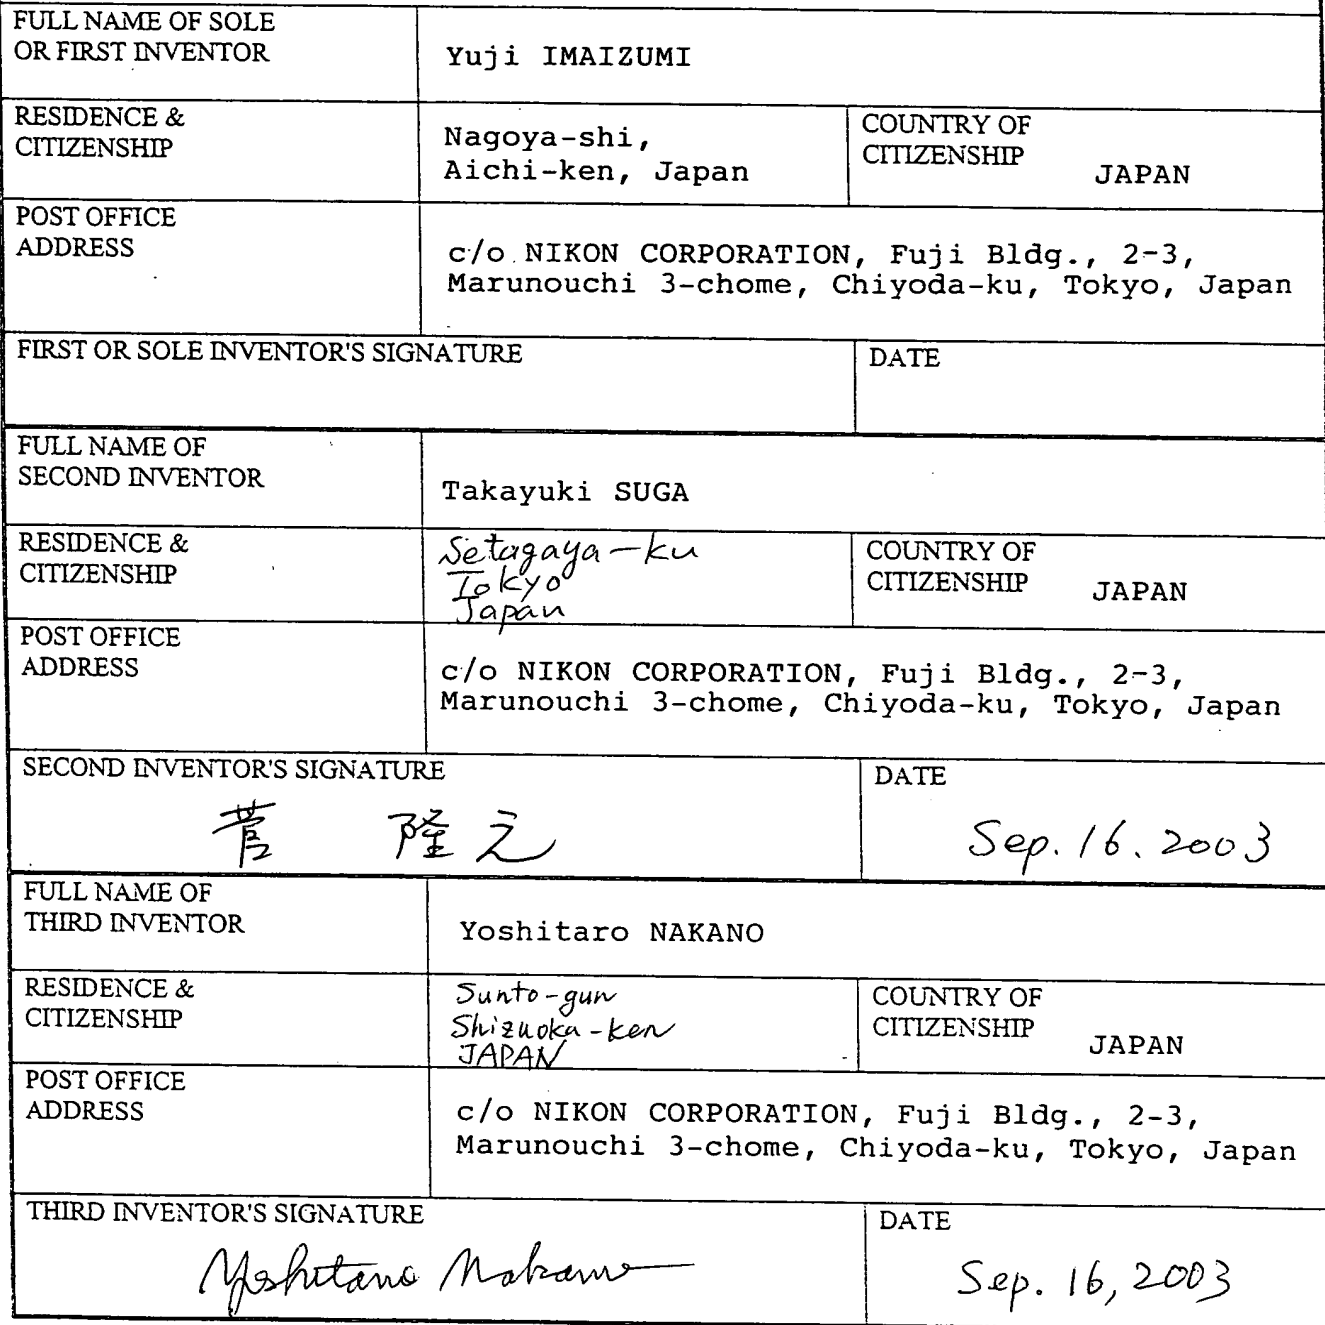 FULL NAME OF SOLE
OR FIRST INVENTOR
Yuji IMAIZUMI
RESIDENCE &
CITIZENSHIP
Nagoya-shi,
Aichi-ken, Japan
COUNTRY OF
CITIZENSHIP
JAPAN
POST OFFICE
ADDRESS
c/o NIKON CORPORATION, Fuji Bldg., 2-3,
Marunouchi 3-chome, Chiyoda-ku, Tokyo, Japan
FIRST OR SOLE INVENTOR'S SIGNATURE
DATE
FULL NAME OF
SECOND INVENTOR
Takayuki SUGA
RESIDENCE &
CITIZENSHIP
Setagaya-ku
Tokyo
Japan
COUNTRY OF
CITIZENSHIP
JAPAN
POST OFFICE
ADDRESS
c/o NIKON CORPORATION, Fuji Bldg., 2-3,
Marunouchi 3-chome, Chiyoda-ku, Tokyo, Japan
SECOND INVENTOR'S SIGNATURE
菅 隆之
DATE
Sep. 16. 2003
FULL NAME OF
THIRD INVENTOR
Yoshitaro NAKANO
RESIDENCE &
CITIZENSHIP
Sunto-gun
Shizuoka-ken
JAPAN
COUNTRY OF
CITIZENSHIP
JAPAN
POST OFFICE
ADDRESS
c/o NIKON CORPORATION, Fuji Bldg., 2-3,
Marunouchi 3-chome, Chiyoda-ku, Tokyo, Japan
THIRD INVENTOR'S SIGNATURE
Yoshitaro Nakano
DATE
Sep. 16, 2003